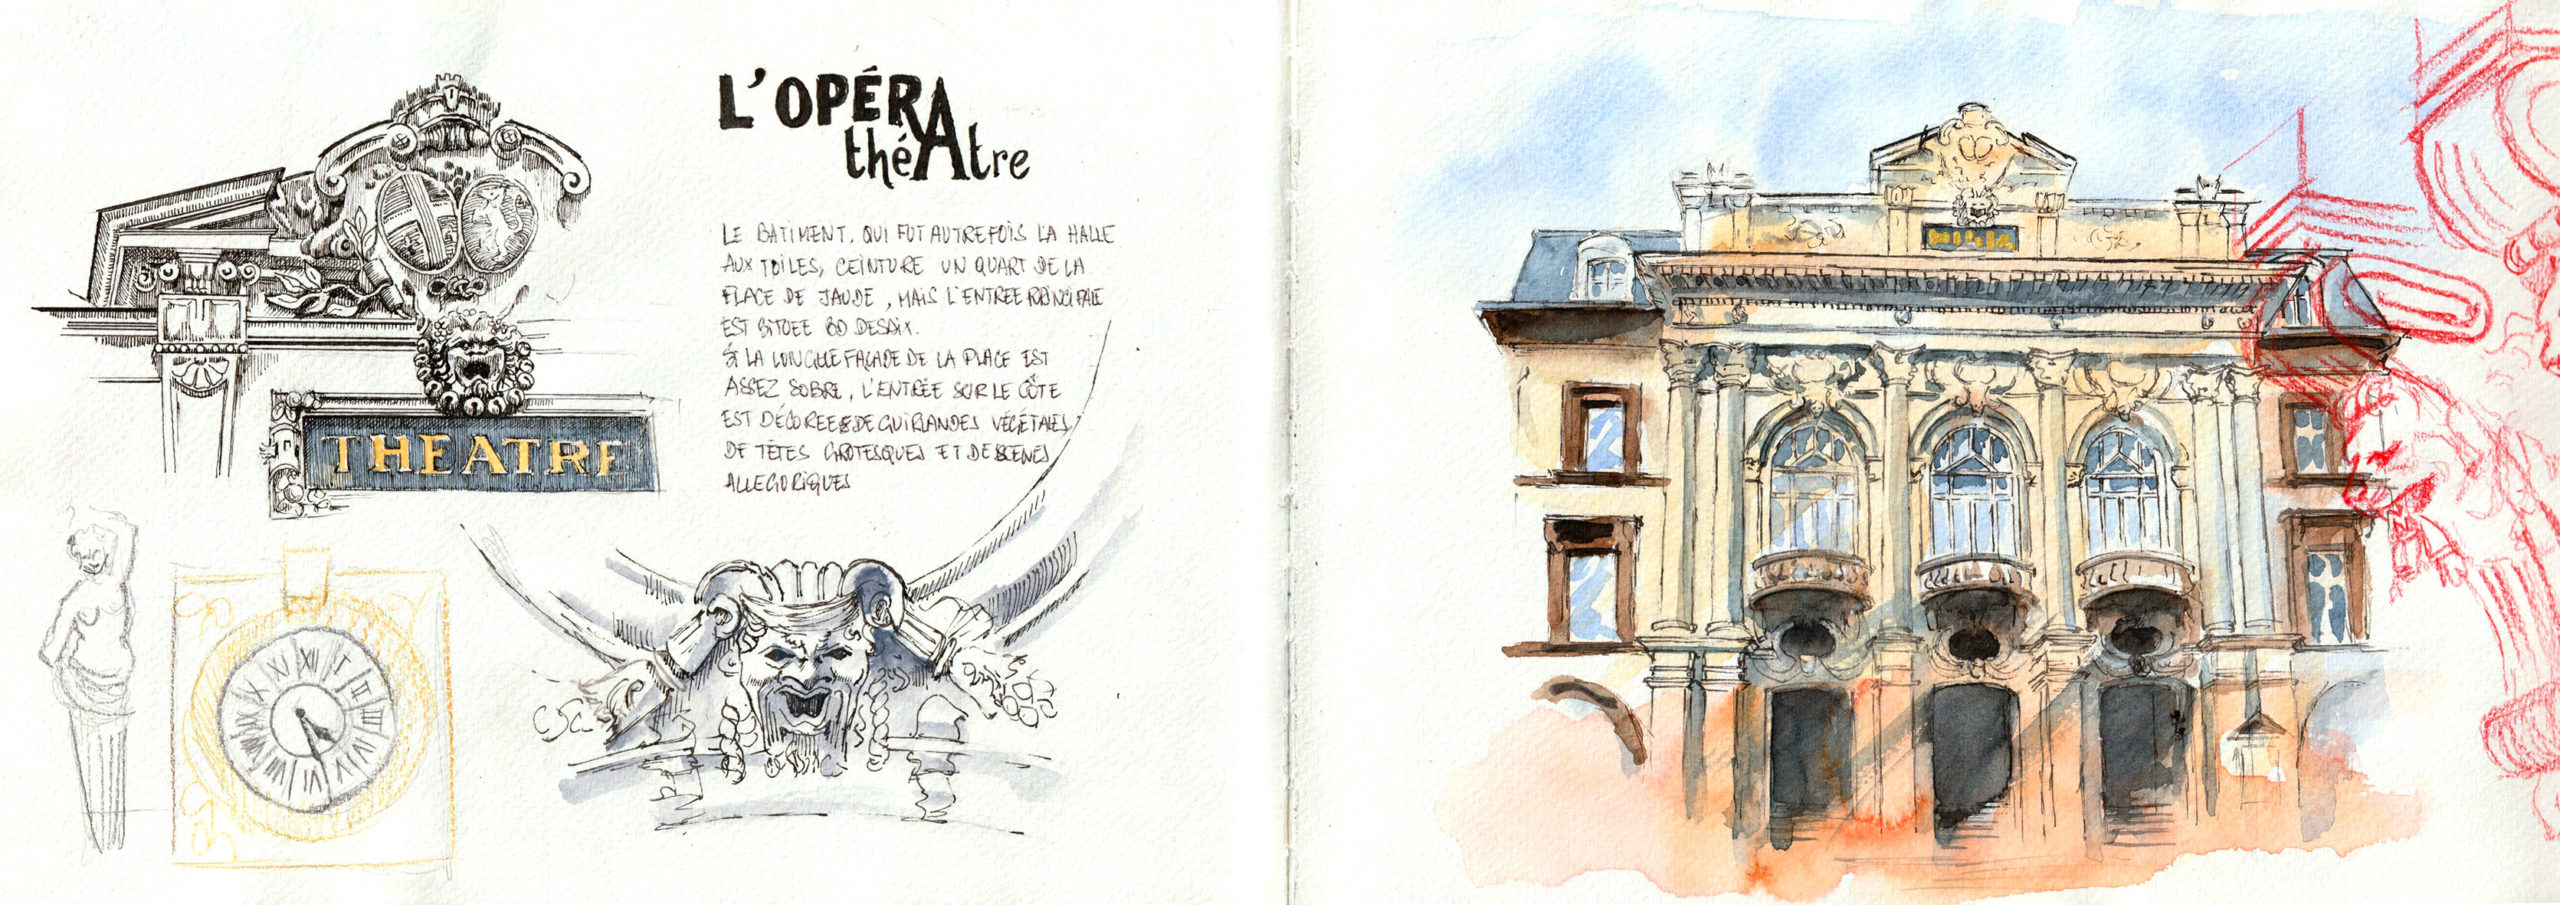 L'OPÉRA
théAtre
LE BATIMENT, QUI FUT AUTREFOIS LA HALLE
AUX TOILES, CEINTURE UN QUART DE LA
PLACE DE JAUDE, MAIS L'ENTREE PRINCIPALE
EST SITUEE BD DESAIX.
SI LA LONGUE FAÇADE DE LA PLACE EST
ASSEZ SOBRE, L'ENTRÉE SUR LE CÔTE
EST DÉCOREE DE GUIRLANDES VÉGÉTALES,
DE TÊTES GROTESQUES ET DE SCENES
ALLEGORIQUES
THEATRE
XII I II III IV V VI VII VIII IX X XI